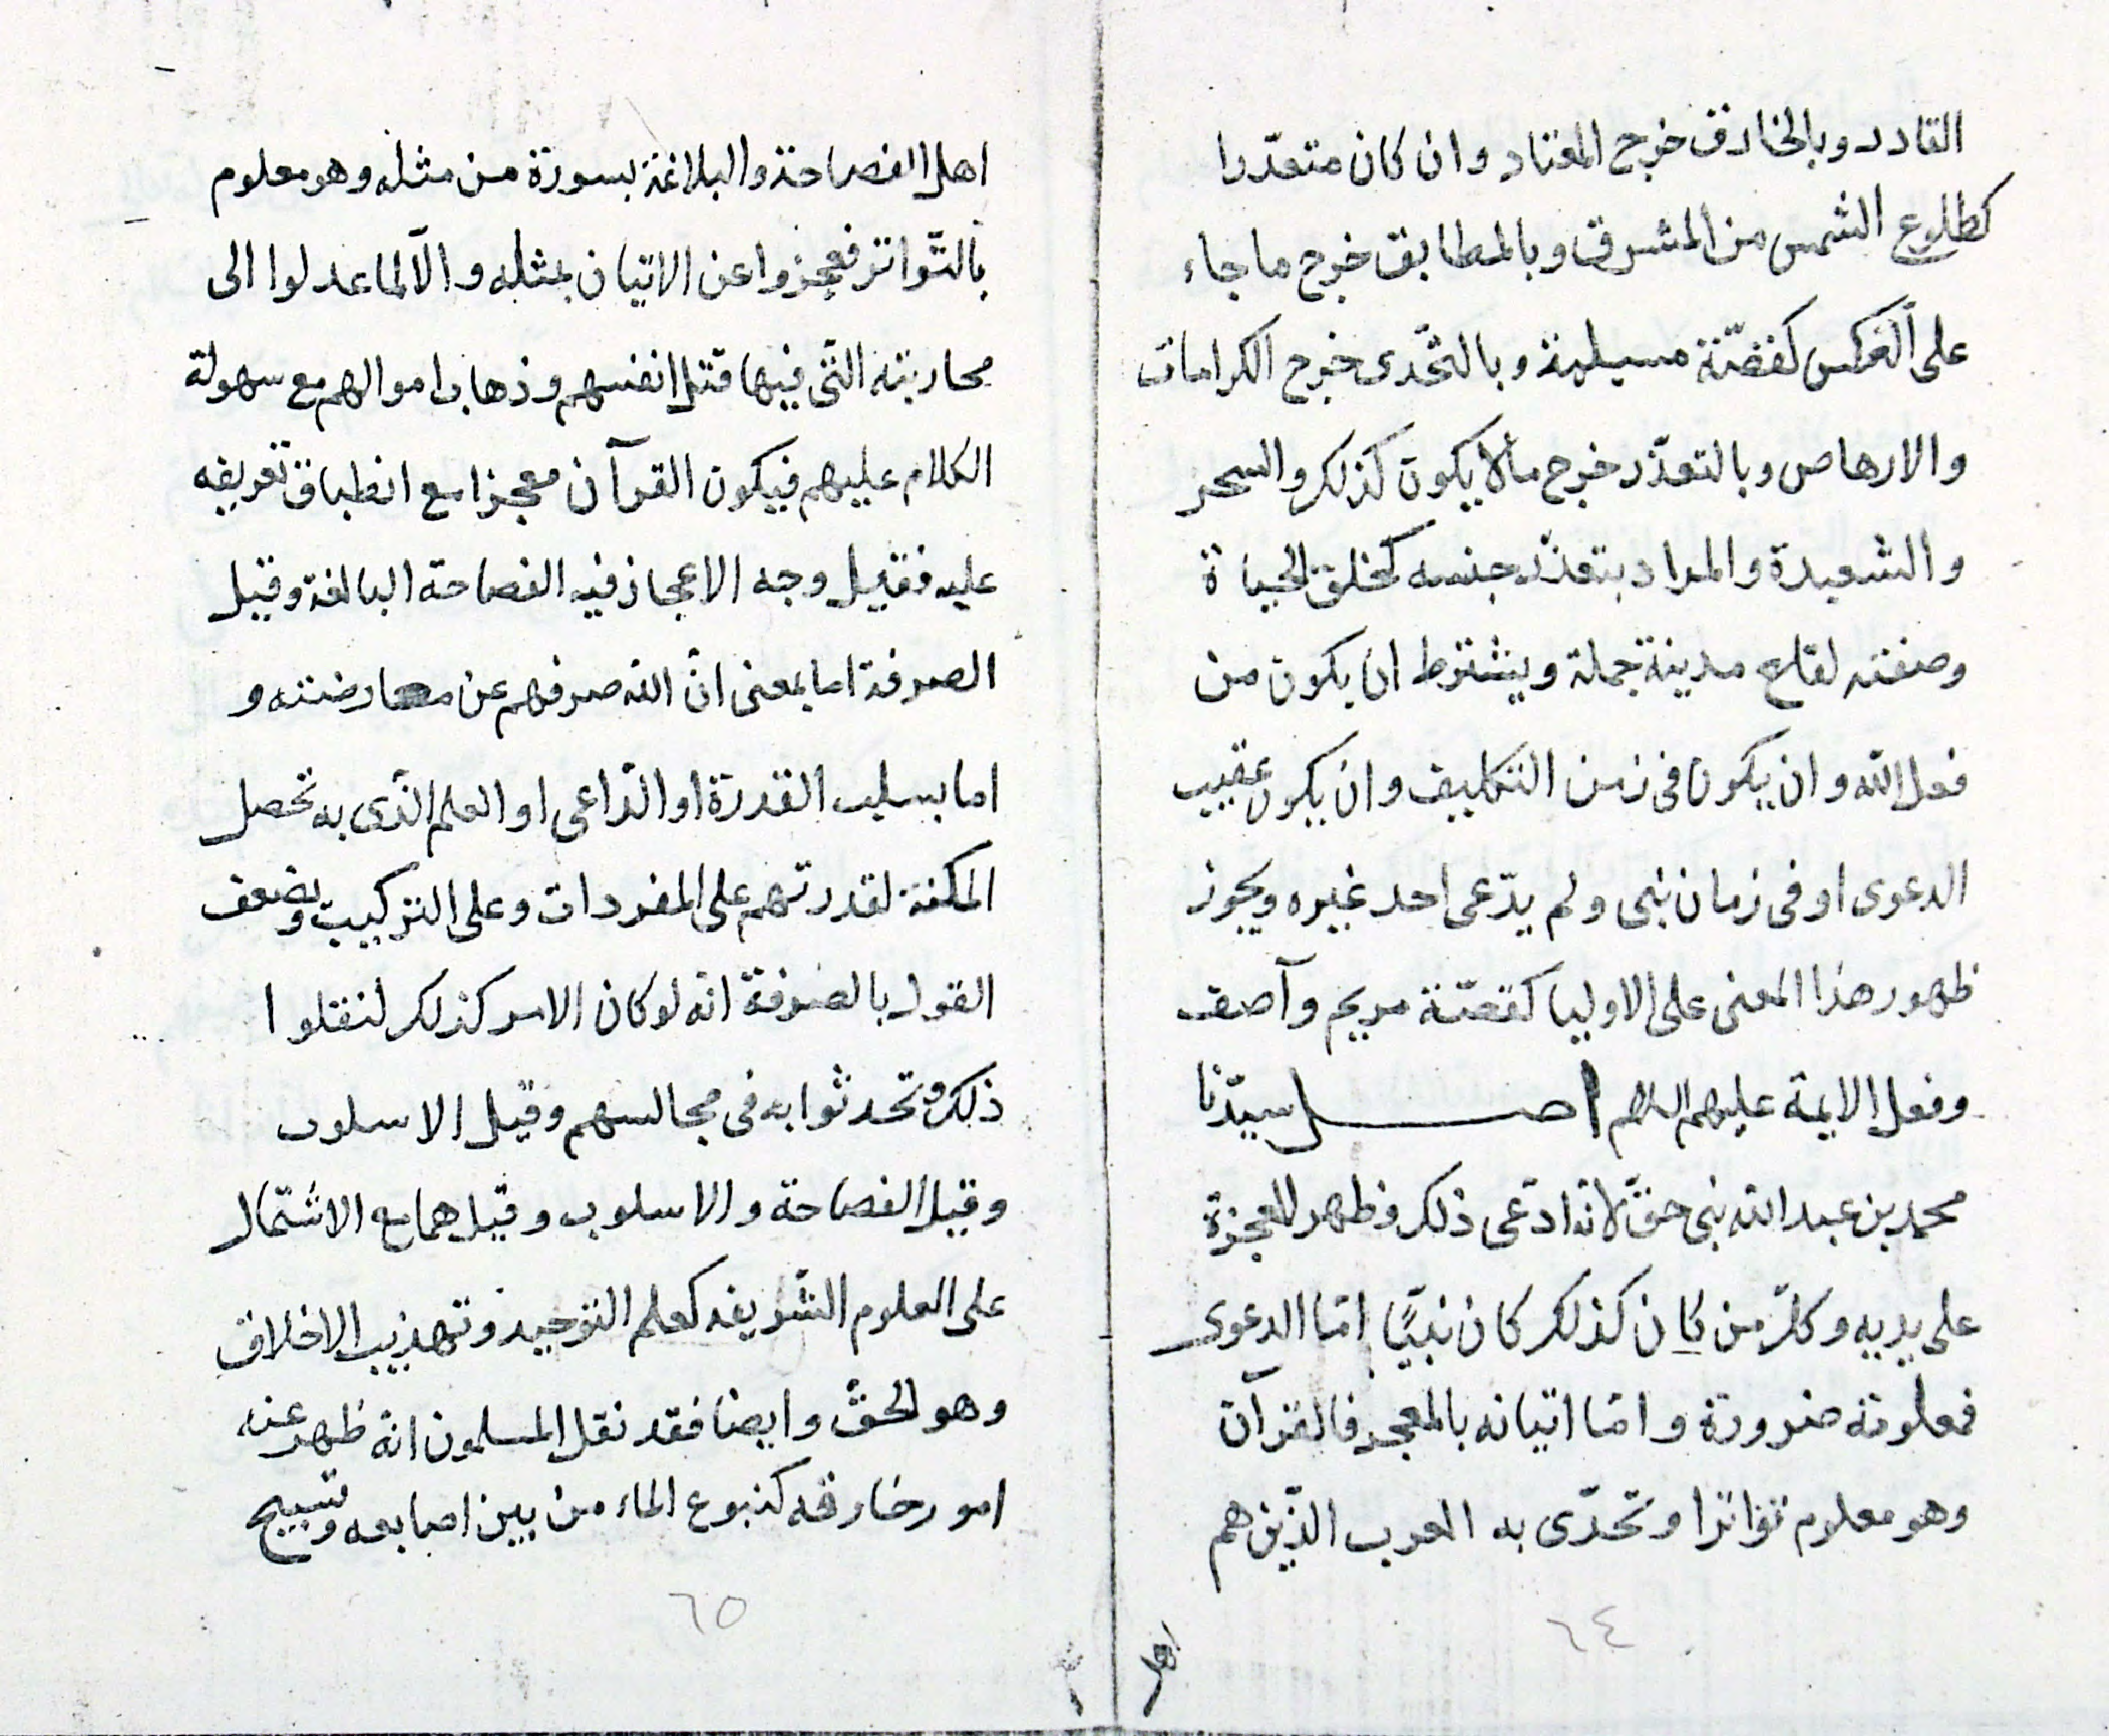 القادر وبالخارق خرج المعتاد وان كان متعذّرا
كطلوع الشمس من المشرق وبالمطابق خرج ما جاء
على العكس كقصّة مسيلمة وبالتحّدى خرج الكرامات
والارهاص وبالتعذّر خرج ما لا يكون كذلك والسحر
والشعبدة والمراد بتعذّر جنسه كخلق الحياة
وصفته لقلع مدينة جملة ويشترط ان يكون من
فعل الله وان يكون فى زمن التكليف وان يكون عقيب
الدعوى او فى زمان نبى ولم يدّعى احد غيره ويجوز
ظهور هذا المعنى على الاوليا كقصّة مريم وآصف
وفعل الايمة عليهم السلام اصل سيّدنا
محمد بن عبد الله نبى حقّ لانّه ادّعى ذلك وظهر المعجزة
على يديه وكلّ من كان كذلك كان نبيًّا امّا الدعوى
فمعلومة ضرورة وامّا اتيانه بالمعجز فالقرآن
وهو معلوم تواترا وتحدّى به العرب الذّين هم
٦٤
اهل
اهل الفصاحة والبلاغة بسورة من مثله وهو معلوم
بالتّواتر فعجزوا عن الاتيان بمثله والّا لما عدلوا الى
محاربته التّى فيها قتل انفسهم وذهاب اموالهم مع سهولة
الكلام عليهم فيكون القرآن معجزا مع انطباق تعريفه
عليه فقيل وجه الاعجاز فيه الفصاحة البالغة وقيل
الصرفة اما بمعنى انّ الله صرفهم عن معارضته و
اما بسلب القدرة او الدّاعى او العلم الذّى به تحصل
المكنة لقدرتهم على المفردات وعلى التركيب ويضعف
القول بالصرفة انّه لو كان الامر كذلك لنقلوا
ذلك وتحدثوا به فى مجالسهم وقيل الاسلوب
وقيل الفصاحة والاسلوب وقيل هما مع الاشتمال
على العلوم الشّريفه كعلم التوحيد وتهذيب الاخلاق
وهو الحقّ وايضا فقد نقل المسلمون انّه ظهر عنه
امور خارقه كنبوع الماء من بين اصابعه وتسبيح
٦٥